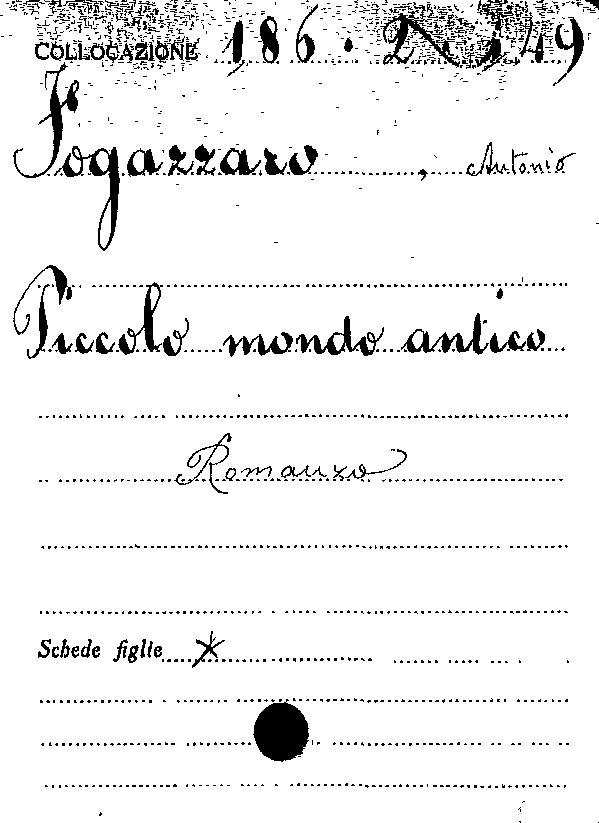 COLLOCAZIONE 186.2
Fogazzaro, Antonio
Piccolo mondo antico
Romanzo
Schede figlie *